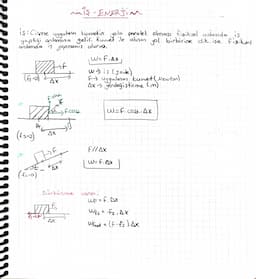 İŞ - ENERJİ
İŞ: Cisme uygulanan kuvvetin yola paralel olması fiziksel anlamda iş
yaptığı anlamına gelir. Kuvvet ile alınan yol birbirine dik ise fiziksel
anlamda iş yapılmaz olunur.
W = F.Δx
W → iş (joule)
F → uygulanan kuvvet (Newton)
Δx → yerdeğiştirme (m)
F
(fs=0)
Δx
F
F.cosα
W = F.cosα.Δx
Δx
(fs=0)
F
F//Δx
Δx
W = F.Δx
(fs=0)
Sürtünme varsa;
F
fs
Δx
WF = F.Δx
Wfs = -fs.Δx
Wnet = (F-fs)Δx